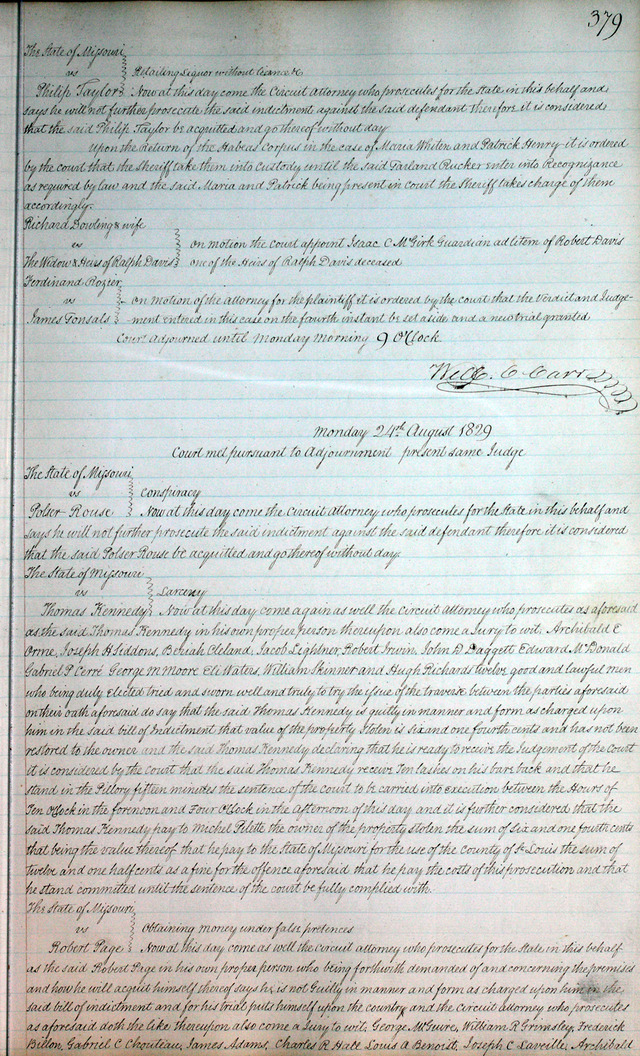 379
The State of Missouri
vs Retailing Liquor without licance &c
Philip Taylor Now at this day come the Circuit Attorney who prosecutes for the State in this behalf and
says he will not further prosecute the said indictment against the said defendant therefore it is considered
that the said Philip Taylor be acquitted and go thereof without day
Upon the Return of the Habeus Corpus in the case of Maria Whiten and Patrick Henry it is ordered
by the court that the Sheriff take them into Custody until the said Tarland Rucker enter into Recognizance
as required by law and the said Maria and Patrick being present in court the Sheriff takes charge of them
accordingly.
Richard Dowling & wife
vs on motion the Court appoint Isaac C McGirk Guardian ad litem of Robert Davis
The Widow & Heirs of Ralph Davis one of the Heirs of Ralph Davis deceased
Ferdinand Rozier
vs on motion of the attorney for the plaintiff it is ordered by the court that the Verdict and Judge-
James Tonsals ment entered in this case on the fourth instant be set aside and a new trial granted
Court Adjourned until Monday morning 9 O'Clock
Will. C. Carr
Monday 24th August 1829
Court met pursuant to Adjournment present same Judge
The State of Missouri
vs conspiracy
Polser Rouse Now at this day come the Circuit Attorney who prosecutes for the State in this behalf and
says he will not further prosecute the said indictment against the said defendant therefore it is considered
that the said Polser Rouse be acquitted and go thereof without day.
The State of Missouri
vs Larceny
Thomas Kennedy Now at this day come again as well the Circuit Attorney who prosecutes as aforesaid
as the said Thomas Kennedy in his own proper person thereupon also come a Jury to wit, Archibald E
Orme, Joseph H Siddons, Beriah Cleland, Jacob Lightner, Robert Irwin, John D Daggett Edward McDonald
Gabriel P. Cerré George M Moore Eli Waters, William Skinner and Hugh Richards twelve good and lawful men
who being duly Elected tried and sworn well and truly to try the issue of the traverse between the parties aforesaid
on their oath aforesaid do say that the said Thomas Kennedy is guilty in manner and form as charged upon
him in the said bill of Indictment that value of the property stolen is six and one fourth cents and has not been
restored to the owner and the said Thomas Kennedy declaring that he is ready to receive the Judgement of the Court
it is considered by the court that the said Thomas Kennedy receive Ten lashes on his bare back and that he
stand in the Pillory fifteen minutes the sentence of the Court to be carried into execution between the Hours of
Ten O'Clock in the forenoon and Four O'Clock in the afternoon of this day and it is further considered that the
said Thomas Kennedy pay to Michel Pelitte the owner of the property stolen the sum of Six and one fourth cents
that being the value thereof that he pay to the State of Missouri for the use of the County of St Louis the sum of
twelve and one half cents as a fine for the offence aforesaid that he pay the costs of this prosecution and that
he stand committed until the sentence of the court be fully complied with.
The State of Missouri
vs Obtaining money under false pretences
Robert Page Now at this day come as well the Circuit attorney who prosecutes for the State in this behalf
as the said Robert Page in his own proper person who being forthwith demanded of and concerning the premises
and how he will acquit himself thereof says he is not Guilty in manner and form as charged upon him in the
said bill of indictment and for his trial puts himself upon the country and the circuit attorney who prosecutes
as aforesaid doth the like thereupon also come a Jury to wit; George McGwire, William R Grimsley, Frederick
Billon, Gabriel C Chouteau, James Adams, Charles R Hall Louis A Benoist, Joseph C Laveille, Archibald